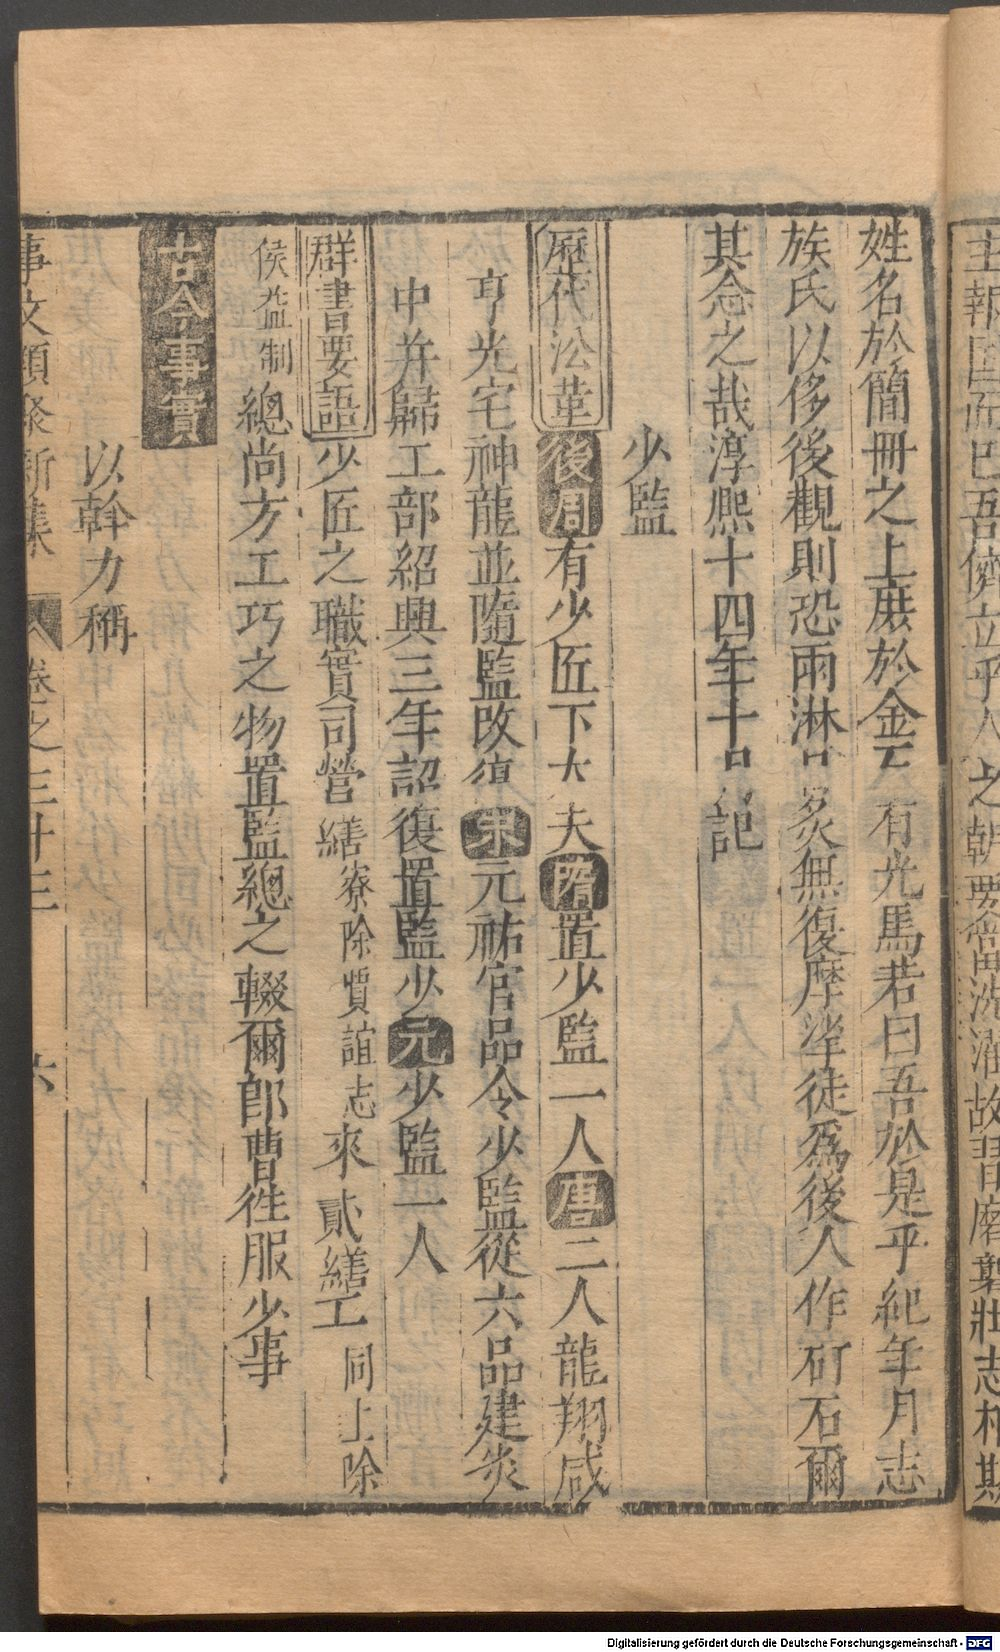 主報国而巴吾儕立乎人之朝要當洗濯故習磨
壯志
姓名於簡冊之上庶於金石有光焉若曰吾於是乎紀年月志
族氏以侈後觀則恐雨淋日炙無復摩挲徒為後人作矴石爾
其念之哉淳熙十四年十記
少監
歷代沿革 後周有少匠下大夫隋置少監一人唐二人龍翔咸
亨光宅神龍並隨監改復宋元祐官品令少監從六品建炎
中并歸工部紹興三年詔復置監少元少監一人
群書要語 少匠之職實司營繕寮除賈誼志來貳繕工同上除
侯益制總尚方工巧之物置監總之輟爾郎曹徃服少事
古今事實
以幹力稱
事文類聚新集 卷之三十三 六
Digitalisierung gefördert durch die Deutsche Forschungsgemeinschaft - DFG